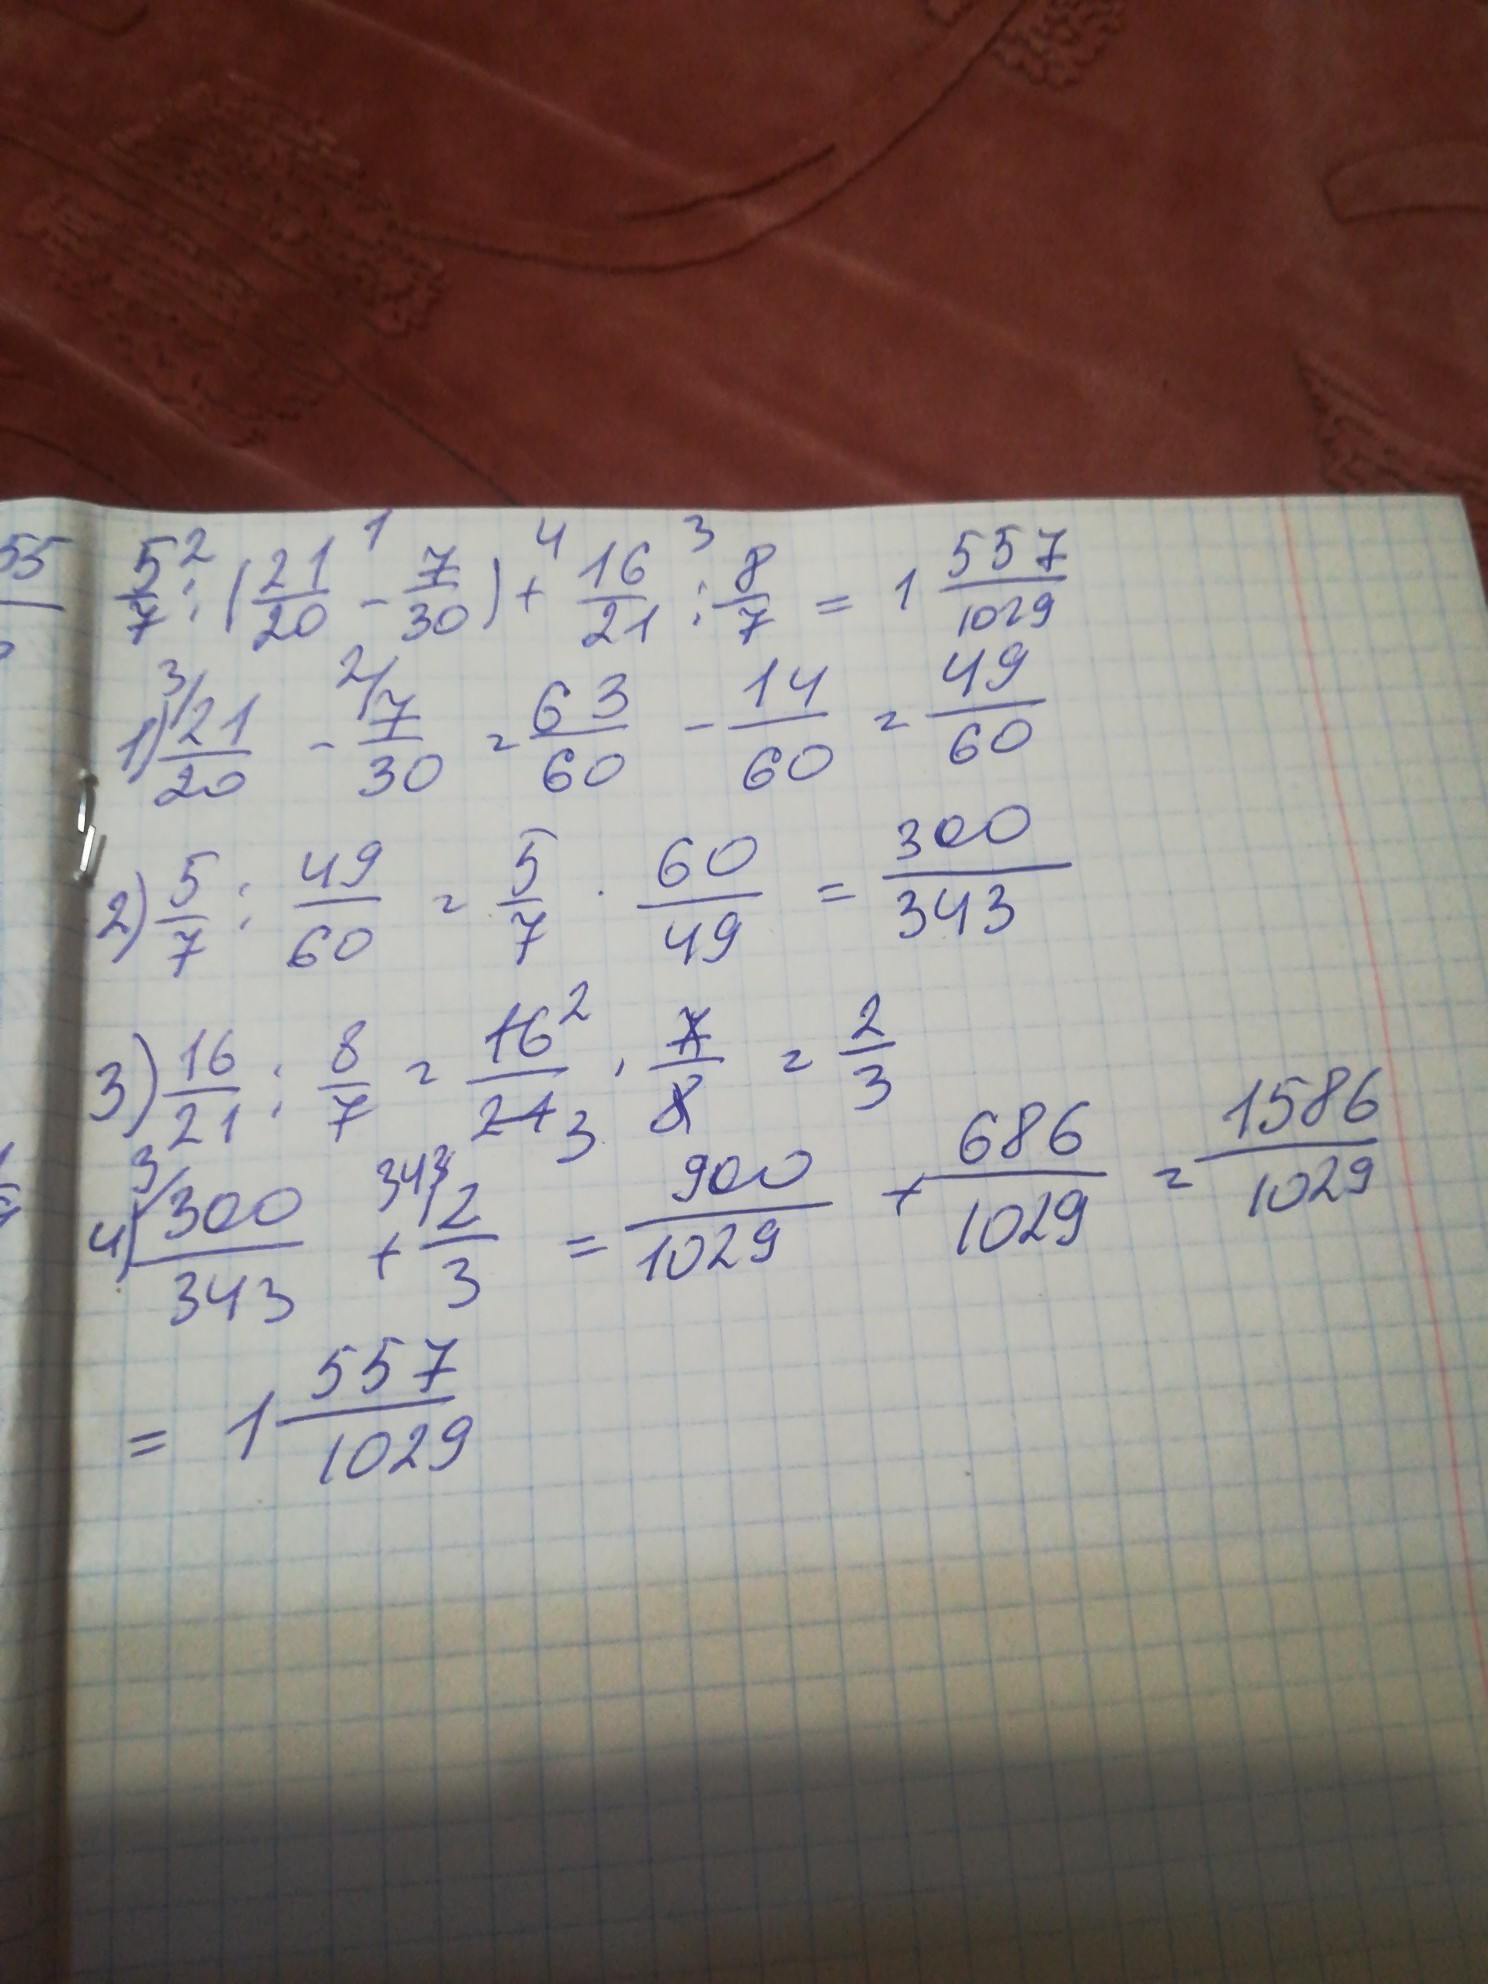 55
5/7² : (21/20 -¹ 7/30) +⁴ 16/21 :³ 8/7 = 1 557/1029
1) ³/21/20 - ²/7/30 = 63/60 - 14/60 = 49/60
2) 5/7 : 49/60 = 5/7 · 60/49 = 300/343
3) 16/21 : 8/7 = 16²/21₃ · 7/8 = 2/3
4) ³/300/343 + ³⁴³/2/3 = 900/1029 + 686/1029 = 1586/1029
= 1 557/1029